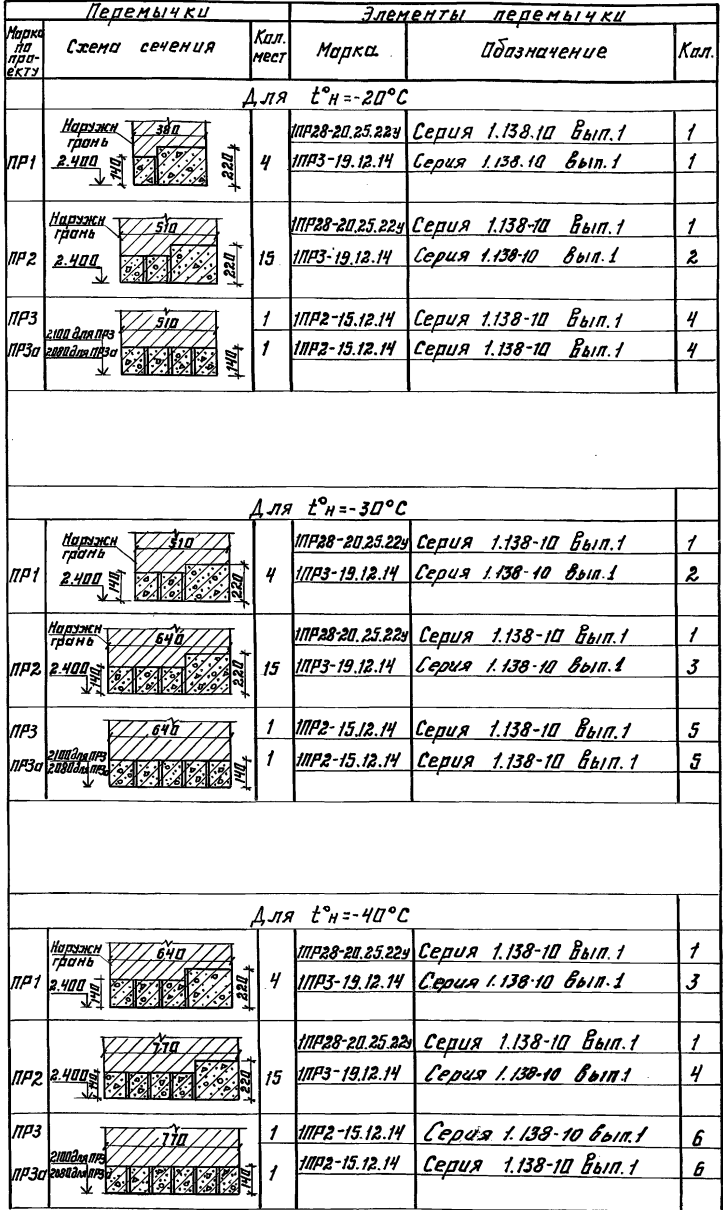 Перемычки Элементы перемычки
Марка по проекту Схема сечения Кол. мест Марка Обозначение Кол.
Для t°н=-20°С
ПР1 Наружн грань 380 2.400 140 220 4
1ПР28-20.25.22у Серия 1.138.10 Вып.1 1
1ПР3-19.12.14 Серия 1.138.10 Вып.1 1
ПР2 Наружн грань 510 2.400 220 15
1ПР28-20.25.22у Серия 1.138-10 Вып.1 1
1ПР3-19.12.14 Серия 1.138-10 Вып.1 2
ПР3 510 1 1ПР2-15.12.14 Серия 1.138-10 Вып.1 4
2100 для ПР3
ПР3а 2080 для ПР3а 140 1 1ПР2-15.12.14 Серия 1.138-10 Вып.1 4
Для t°н=-30°С
ПР1 Наружн грань 510 2.400 140 220 4
1ПР28-20.25.22у Серия 1.138-10 Вып.1 1
1ПР3-19.12.14 Серия 1.138-10 Вып.1 2
ПР2 Наружн грань 640 2.400 140 220 15
1ПР28-20.25.22у Серия 1.138-10 Вып.1 1
1ПР3-19.12.14 Серия 1.138-10 Вып.1 3
ПР3 640 1 1ПР2-15.12.14 Серия 1.138-10 Вып.1 5
2100 для ПР3
ПР3а 2080 для ПР3а 140 1 1ПР2-15.12.14 Серия 1.138-10 Вып.1 5
Для t°н=-40°С
ПР1 Наружн грань 640 2.400 140 220 4
1ПР28-20.25.22у Серия 1.138-10 Вып.1 1
1ПР3-19.12.14 Серия 1.138-10 Вып.1 3
ПР2 770 2.400 140 220 15
1ПР28-20.25.22у Серия 1.138-10 Вып.1 1
1ПР3-19.12.14 Серия 1.138-10 Вып.1 4
ПР3 770 1 1ПР2-15.12.14 Серия 1.138-10 Вып.1 6
2100 для ПР3
ПР3а 2080 для ПР3а 140 1 1ПР2-15.12.14 Серия 1.138-10 Вып.1 6